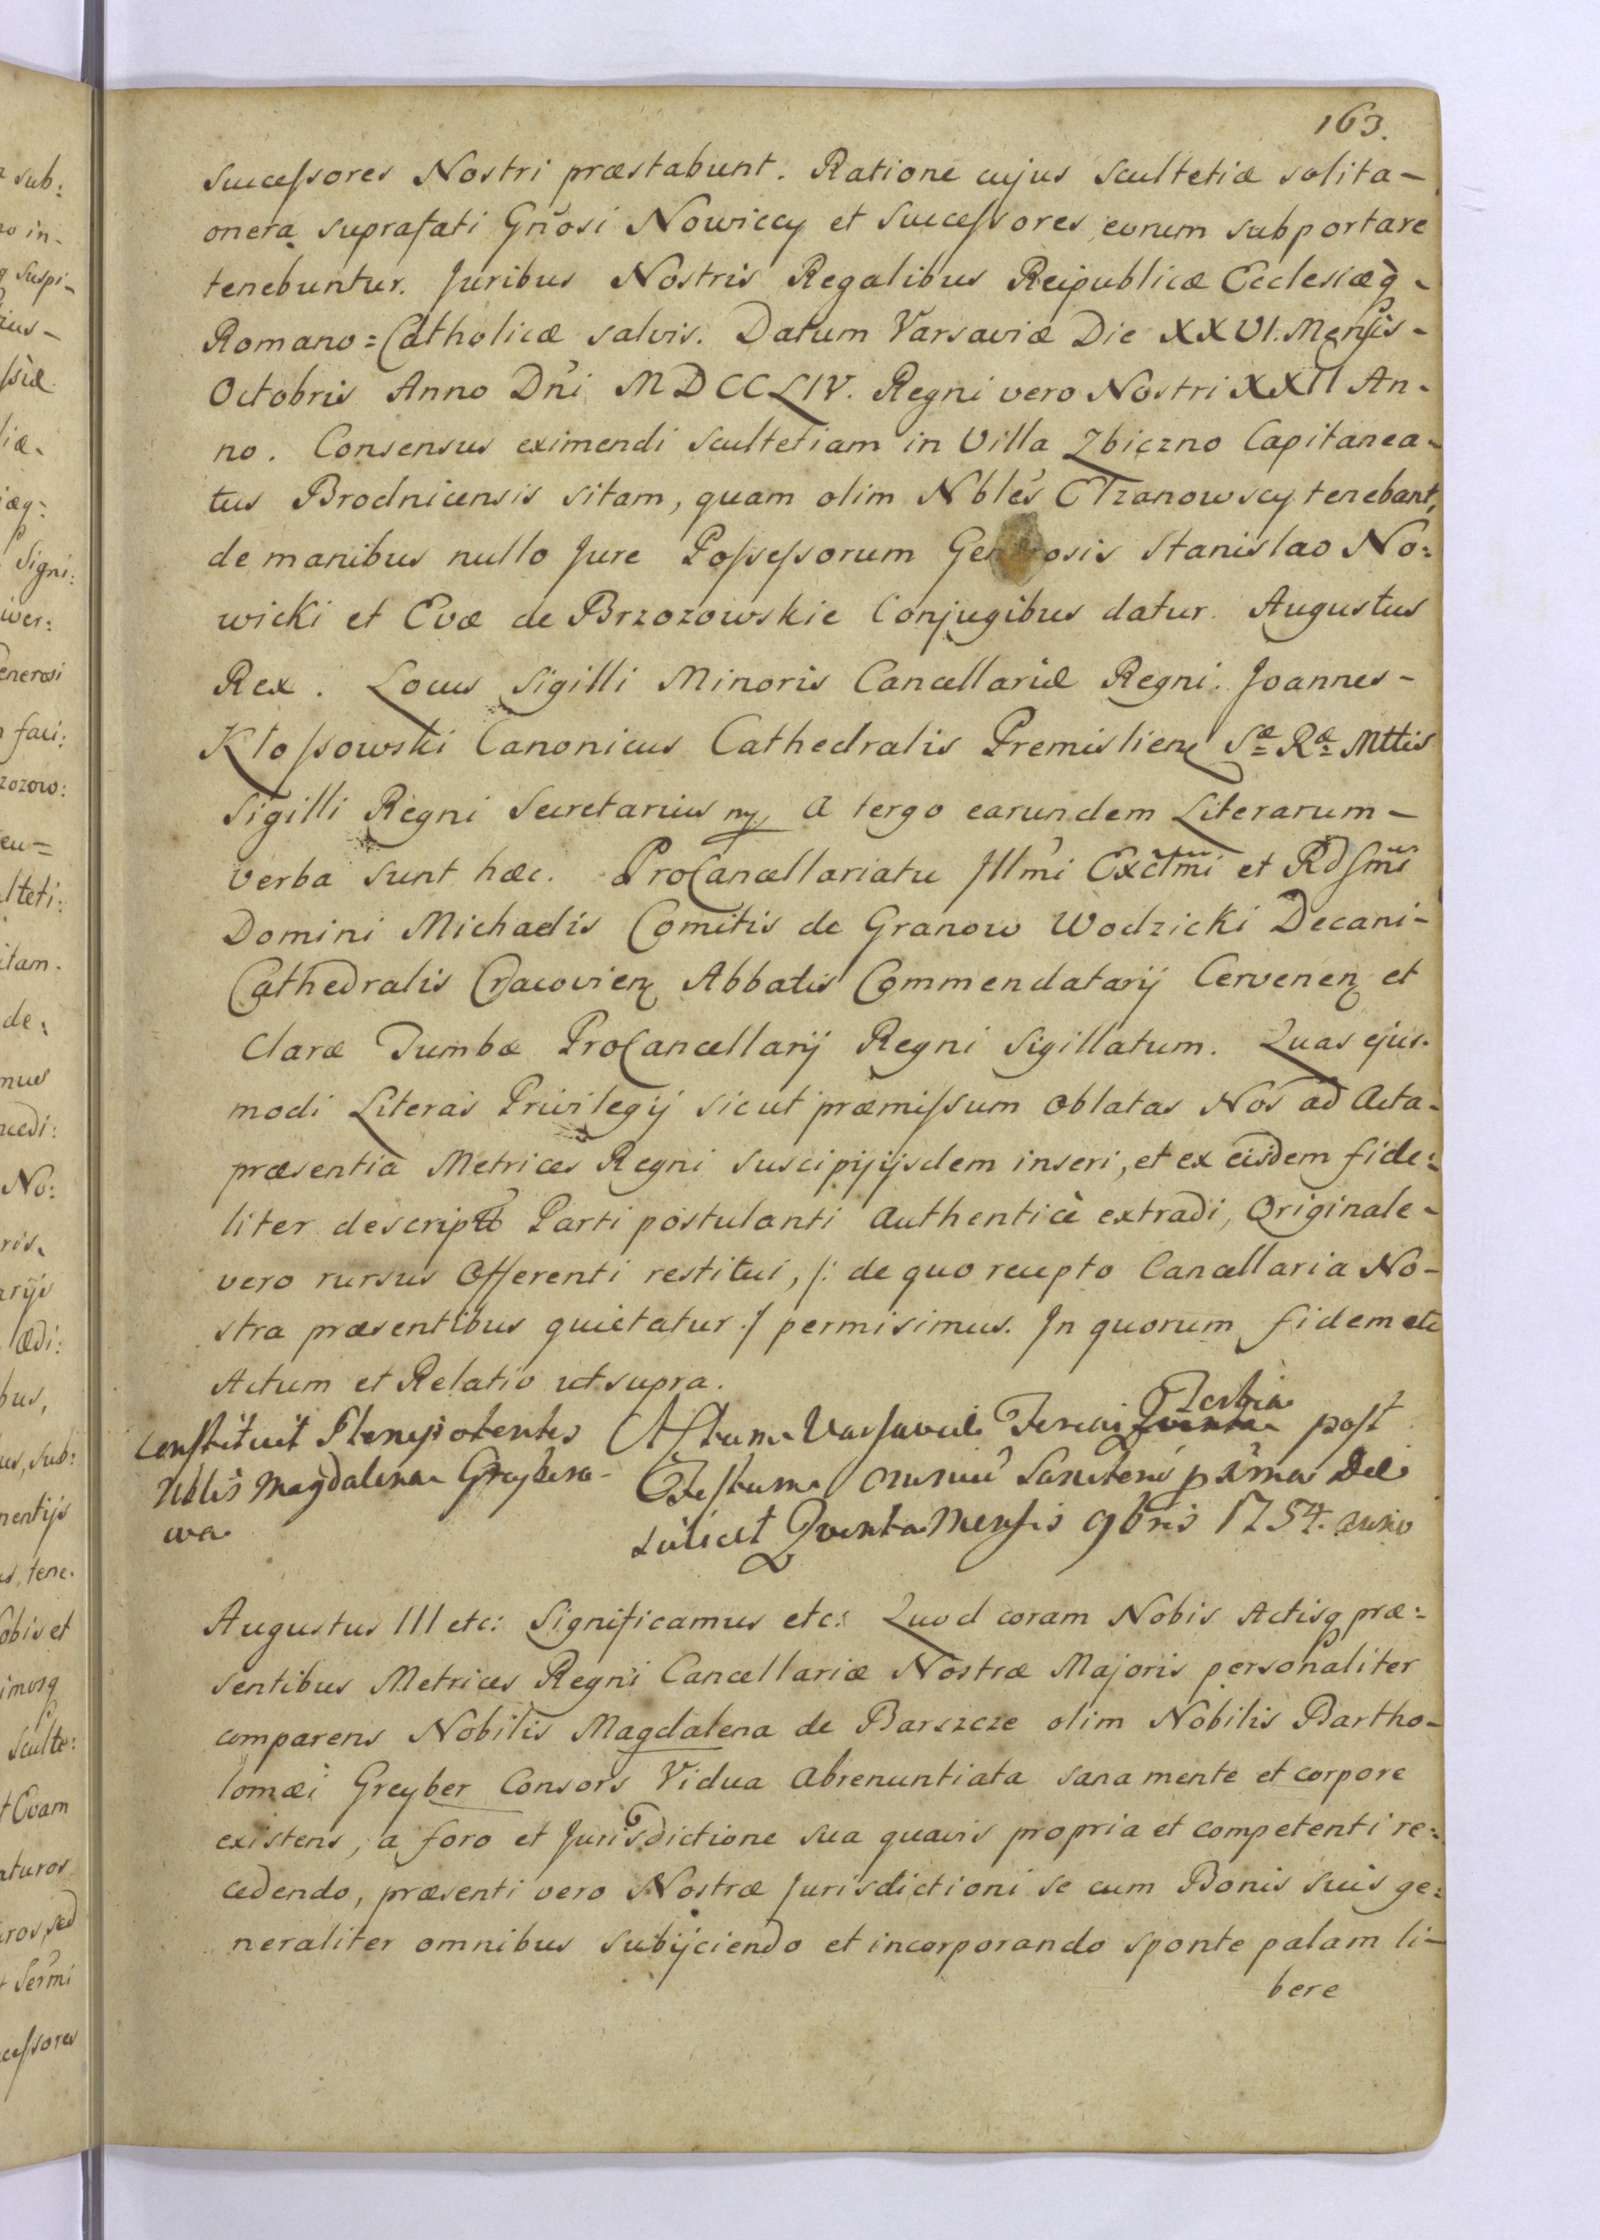 163.
successores Nostri præstabunt. Ratione cujus Scultetiæ solita-
onera suprafati Gnosi Nowiccy et Successores eorum subportare
tenebuntur. Juribus Nostris Regalibus Reipublicæ Ecclesiæq̀-
Romano=Catholicæ salvis. Datum Varsaviæ Die XXVI. Mensis-
Octobris Anno Dni MDCCLIV. Regni vero Nostri XXII An-
no. Consensus eximendi scultetiam in Villa Zbiczno Capitanea-
tus Brodnicensis sitam, quam olim Nbles Ctzanowscy tenebant,
de manibus nullo Jure Possessorum Generosis Stanislao No:
wicki et Evæ de Brzozowskie Conjugibus datur. Augustus
Rex. Locus Sigilli Minoris Cancellariæ Regni. Joannes-
Kłossowski Canonicus Cathedralis Premislien Sæ Ræ Mttis
Sigilli Regni Secretarius mp A tergo earundem Literarum-
verba sunt hæc. ProCancellariatu Illmi Exctmi et Rdsmi
Domini Michaelis Comitis de Granow Wodzicki Decani-
Cathedralis Cracovien Abbatis Commendatarij Cervenen et
Claræ Tumbæ ProCancellarij Regni Sigillatum. Quas ejus-
modi Literas Privilegij sicut præmissum oblatas Nos ad Acta-
præsentia Metrices Regni suscipi, ijsdem inseri, et ex eisdem fide:
liter descripto Parti postulanti authenticè extradi, Originale-
vero rursus Offerenti restitui, /: de quo recepto Cancellaria No-
stra præsentibus quietatur :/ permisimus. In quorum fidem etc
Actum et Relatio ut supra.
Constituit Plenipotentes
Nblis Magdalena Greybero-
wa
Actum Varsaviæ Feria Quinta Tertia post
Festum omniu Sanctoru pxima Die
scilicet Quinta Mensis 9bris 1754. anno
Augustus III etc: Significamus etc: Quod coram Nobis Actisq præ:
sentibus Metrices Regni Cancellariæ Nostræ Majoris personaliter
comparens Nobilis Magdalena de Barszcze olim Nobilis Bartho-
lomæi Greyber Consors Vidua abrenuntiata sana mente et corpore
existens, a foro et Jurisdictione sua quavis propria et competenti re:
cedendo, præsenti vero Nostræ Jurisdictioni se cum Bonis suis ge:
neraliter omnibus subijciendo et incorporando sponte palam li-
bere